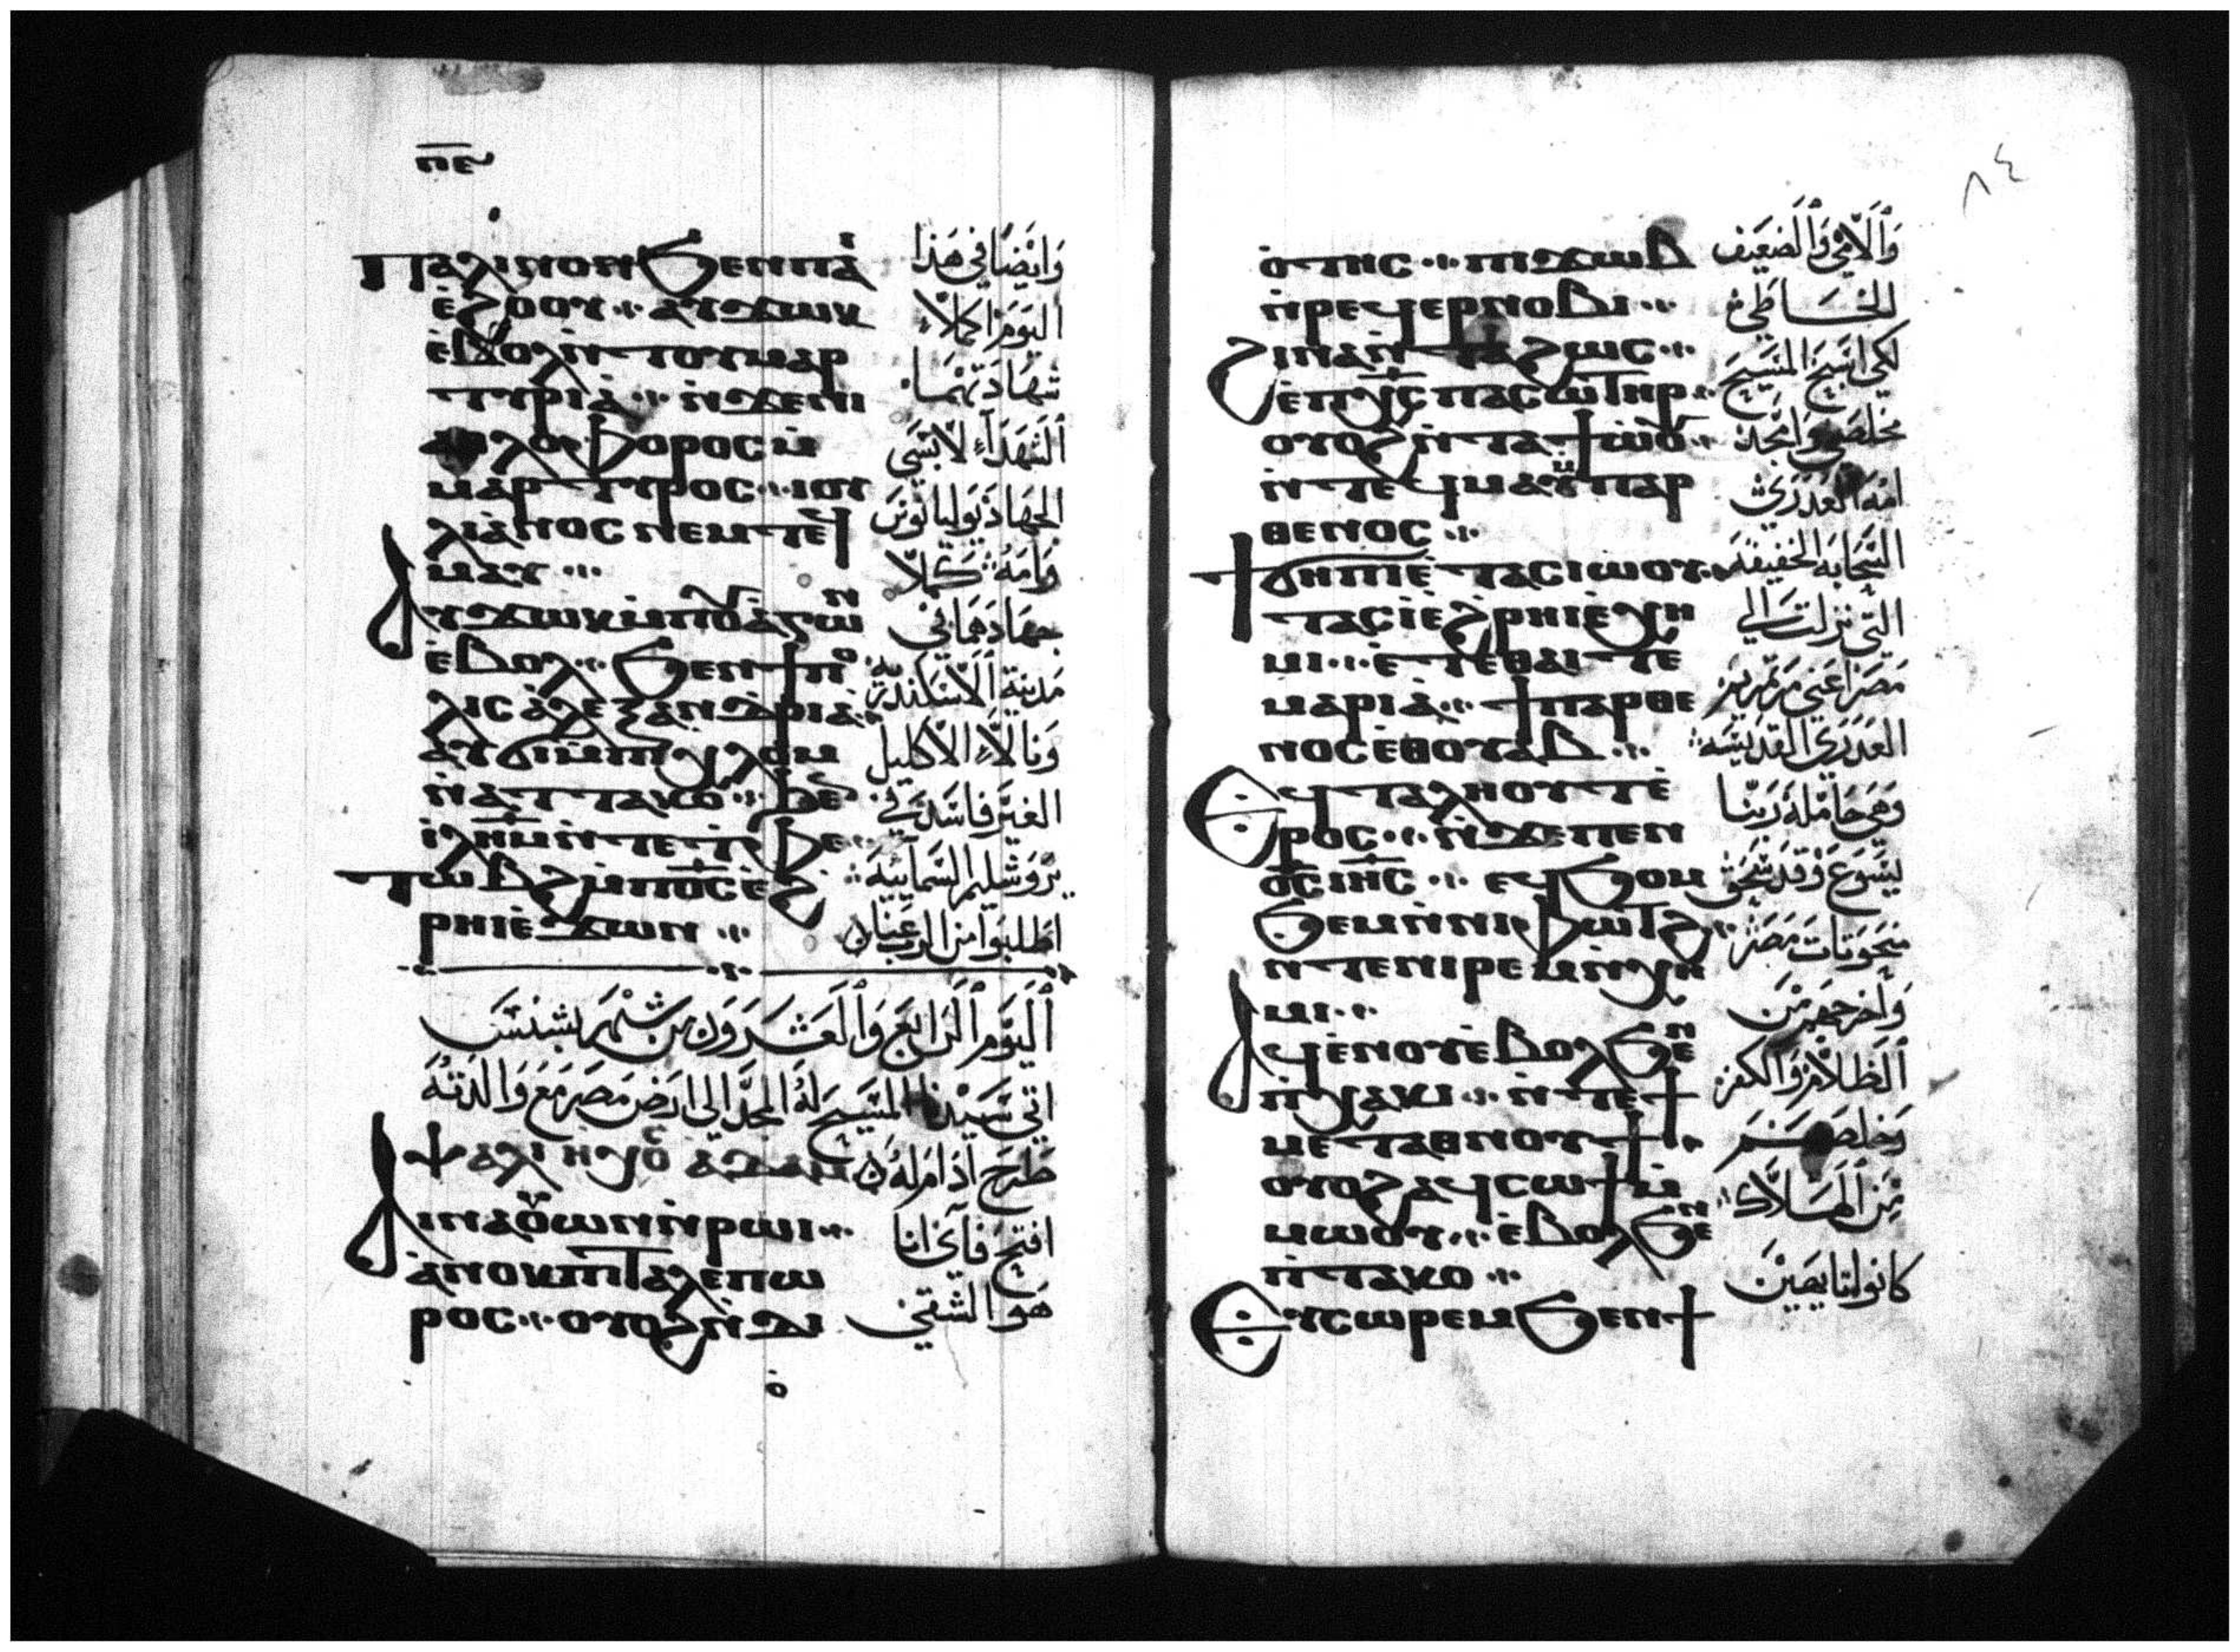 ⲡⲉ
ⲡⲁⲗⲓⲛⲟⲛ ϧⲉⲛ ⲡⲁⲓ
ⲉ̀ϩⲟⲟⲩ ⁖ ⲁⲩϫⲱⲕ
ⲉ̀ⲃⲟⲗ ⲛ̀ⲧⲟⲩⲙⲁⲣ
ⲧⲩⲣⲓⲁ̀ ⁖ ⲛ̀ϫⲉⲛⲓ
ⲁⲑⲗⲟⲫⲟⲣⲟⲥ ⲙ̀
ⲙⲁⲣⲧⲩⲣⲟⲥ ⁖ ⲓⲟⲩ
ⲗⲓⲁⲛⲟⲥ ⲛⲉⲙ ⲧⲉϥ
ⲙⲁⲩ ⁖
ⲁⲩϫⲱⲕ ⲙ̀ⲡⲟⲩⲁⲅⲱⲛ
ⲉ̀ⲃⲟⲗ ⁖ ϧⲉⲛ ϯⲡⲟ
ⲗⲓⲥ ⲁ̀ⲗⲉⲝⲁⲛⲇⲣⲓⲁ̀ ⁖
ⲁⲩϭⲓ ⲙ̀ⲡⲓⲭⲗⲟⲙ
ⲛ̀ⲁⲧⲧⲁⲕⲟ ⁖ ϧⲉⲛ
ⲓⲗⲏⲙ ⲛ̀ⲧⲉ ⲧ̀ⲫⲉ ⁖
ⲧⲱⲃϩ ⲙ̀ⲡⲟ̅ⲥ̅ ⲉ̀ϩ
ⲣⲏⲓ ⲉ̀ϫⲱⲛ ⁖
وَايْضًا فِي هَذَا
اليَومَ اكَملَاّء
شَهَادَتَهُمَا
اَلشُهَدَآء لَابْسَى
الجهَاد يُوليَانُوسَ
وَامَهُ كَمَلاّ
جهَادهَمَا فِي
مَدينَة اَلاسَكَندَريَه
وَنَالاَء الاكليل
الغيَر فَاسَدَ فِي
يَرُوشليم السَمَايِيَهَ
اطَلبُوا مِن الرب عَنا
اَليَومَ الرَابعَ وَالعَشَرَوَن مِن شَهْر بشنَسَ
اتى سَيدْنا المَسَيحَ لَهُ المجَد الى ارَضَ مَصَر مَعَ وَالدَتهُ
طَرَح ادَام لَهُ ⲯⲁⲗⲓ ⲏⲭⲟⲥ ⲁⲇⲁⲙ
ⲁⲓⲛⲁⲟⲩⲱⲛ ⲛ̀ⲣⲱⲓ ⁖
ⲁ̀ⲛⲟⲕ ⲡⲓⲧⲁⲗⲉⲡⲱ
ⲣⲟⲥ ⁖ ⲟⲩⲟϩ ⲛ̀ϫⲓ
افتَح فَآىَ انَا
هَوَ الشَقىَ
٨٤
ⲟ̀ⲧⲏⲥ ⁖ ⲡⲓϫⲱⲃ
ⲛ̀ⲣⲉϥⲉⲣⲛⲟⲃⲓ ⁖
ϩⲓⲛⲁ ⲛ̀ⲧⲁϩⲱⲥ ⁖
ⲉ̀ⲡⲭ̅ⲥ̅ ⲡⲁⲥⲱⲧⲏⲣ ⁖
ⲟⲩⲟϩ ⲛ̀ⲧⲁϯⲱ̀ⲟⲩ ⁖
ⲛ̀ⲧⲉϥⲙⲁⲩ ⲙ̀ⲡⲁⲣ
ⲑⲉⲛⲟⲥ ⁖
ϯϭⲏⲡⲓ ⲉ̀ⲧⲁⲥⲓⲱⲟⲩ ⁖
ⲧⲁⲥⲓ̀ ⲉ̀ϩⲣⲏⲓ ⲉ̀ⲭⲏ
ⲙⲓ ⁖ ⲉ̀ⲧⲉ ⲑⲁⲓ ⲧⲉ
ⲙⲁⲣⲓⲁ̀ ⁖ ϯⲡⲁⲣⲑⲉ
ⲛⲟⲥ ⲉⲑⲟⲩⲁⲃ ⁖
ⲉϥⲧⲁⲗⲏⲟⲩⲧ ⲉ̀
ⲣⲟⲥ ⁖ ⲛ̀ϫⲉ ⲡⲉⲛ
ⲟ̅ⲥ̅ ⲓⲏ̅ⲥ̅ ⁖ ⲉϥϧⲟⲙ
ϧⲉⲙ ⲛ̀ⲛⲓⲫⲱⲧϩ ⁖
ⲛ̀ⲧⲉ ⲛⲓⲣⲉⲙⲛ̀ⲭⲏ
ⲙⲓ ⁖
ⲁϥⲉⲛⲟⲩ ⲉ̀ⲃⲟⲗ ϧⲉⲛ
ⲡ̀ⲭⲁⲕⲓ ⁖ ⲛ̀ⲧⲉ ϯ
ⲙⲉⲧⲁⲑⲛⲟⲩϯ ⁖
ⲟⲩⲟϩ ⲁϥⲥⲱϯ ⲙ̀
ⲙⲱⲟⲩ ⁖ ⲉ̀ⲃⲟⲗ ϧⲉⲛ
ⲡ̀ⲧⲁⲕⲟ ⁖
ⲉⲩⲥⲱⲣⲉⲙ ϧⲉⲛ ϯ
وَالاَمّي وَالضَعَيف
الخَاطَى
لكَي اسَبَح المَسَيحَ
مخلصَى وَامجَدَ
امَهَ العَدَرَى
السَحَابَه الخَفيفَه
التَى نزلت الَى
مَصَر اعَنى مَرَيم
العَدَرَى القَدَيسَه
وَهَي حَامَلهَ رَبنَا
يَسَوعَ وَقَد سَحَق
مَنَحَوتَات مَصَر
وَاخَرجَهمَ مَن
اَلظَلامَ وَالكفر
وَخلصَهَم
مَن اَلهَلاَك
كانوا تايهَيَن